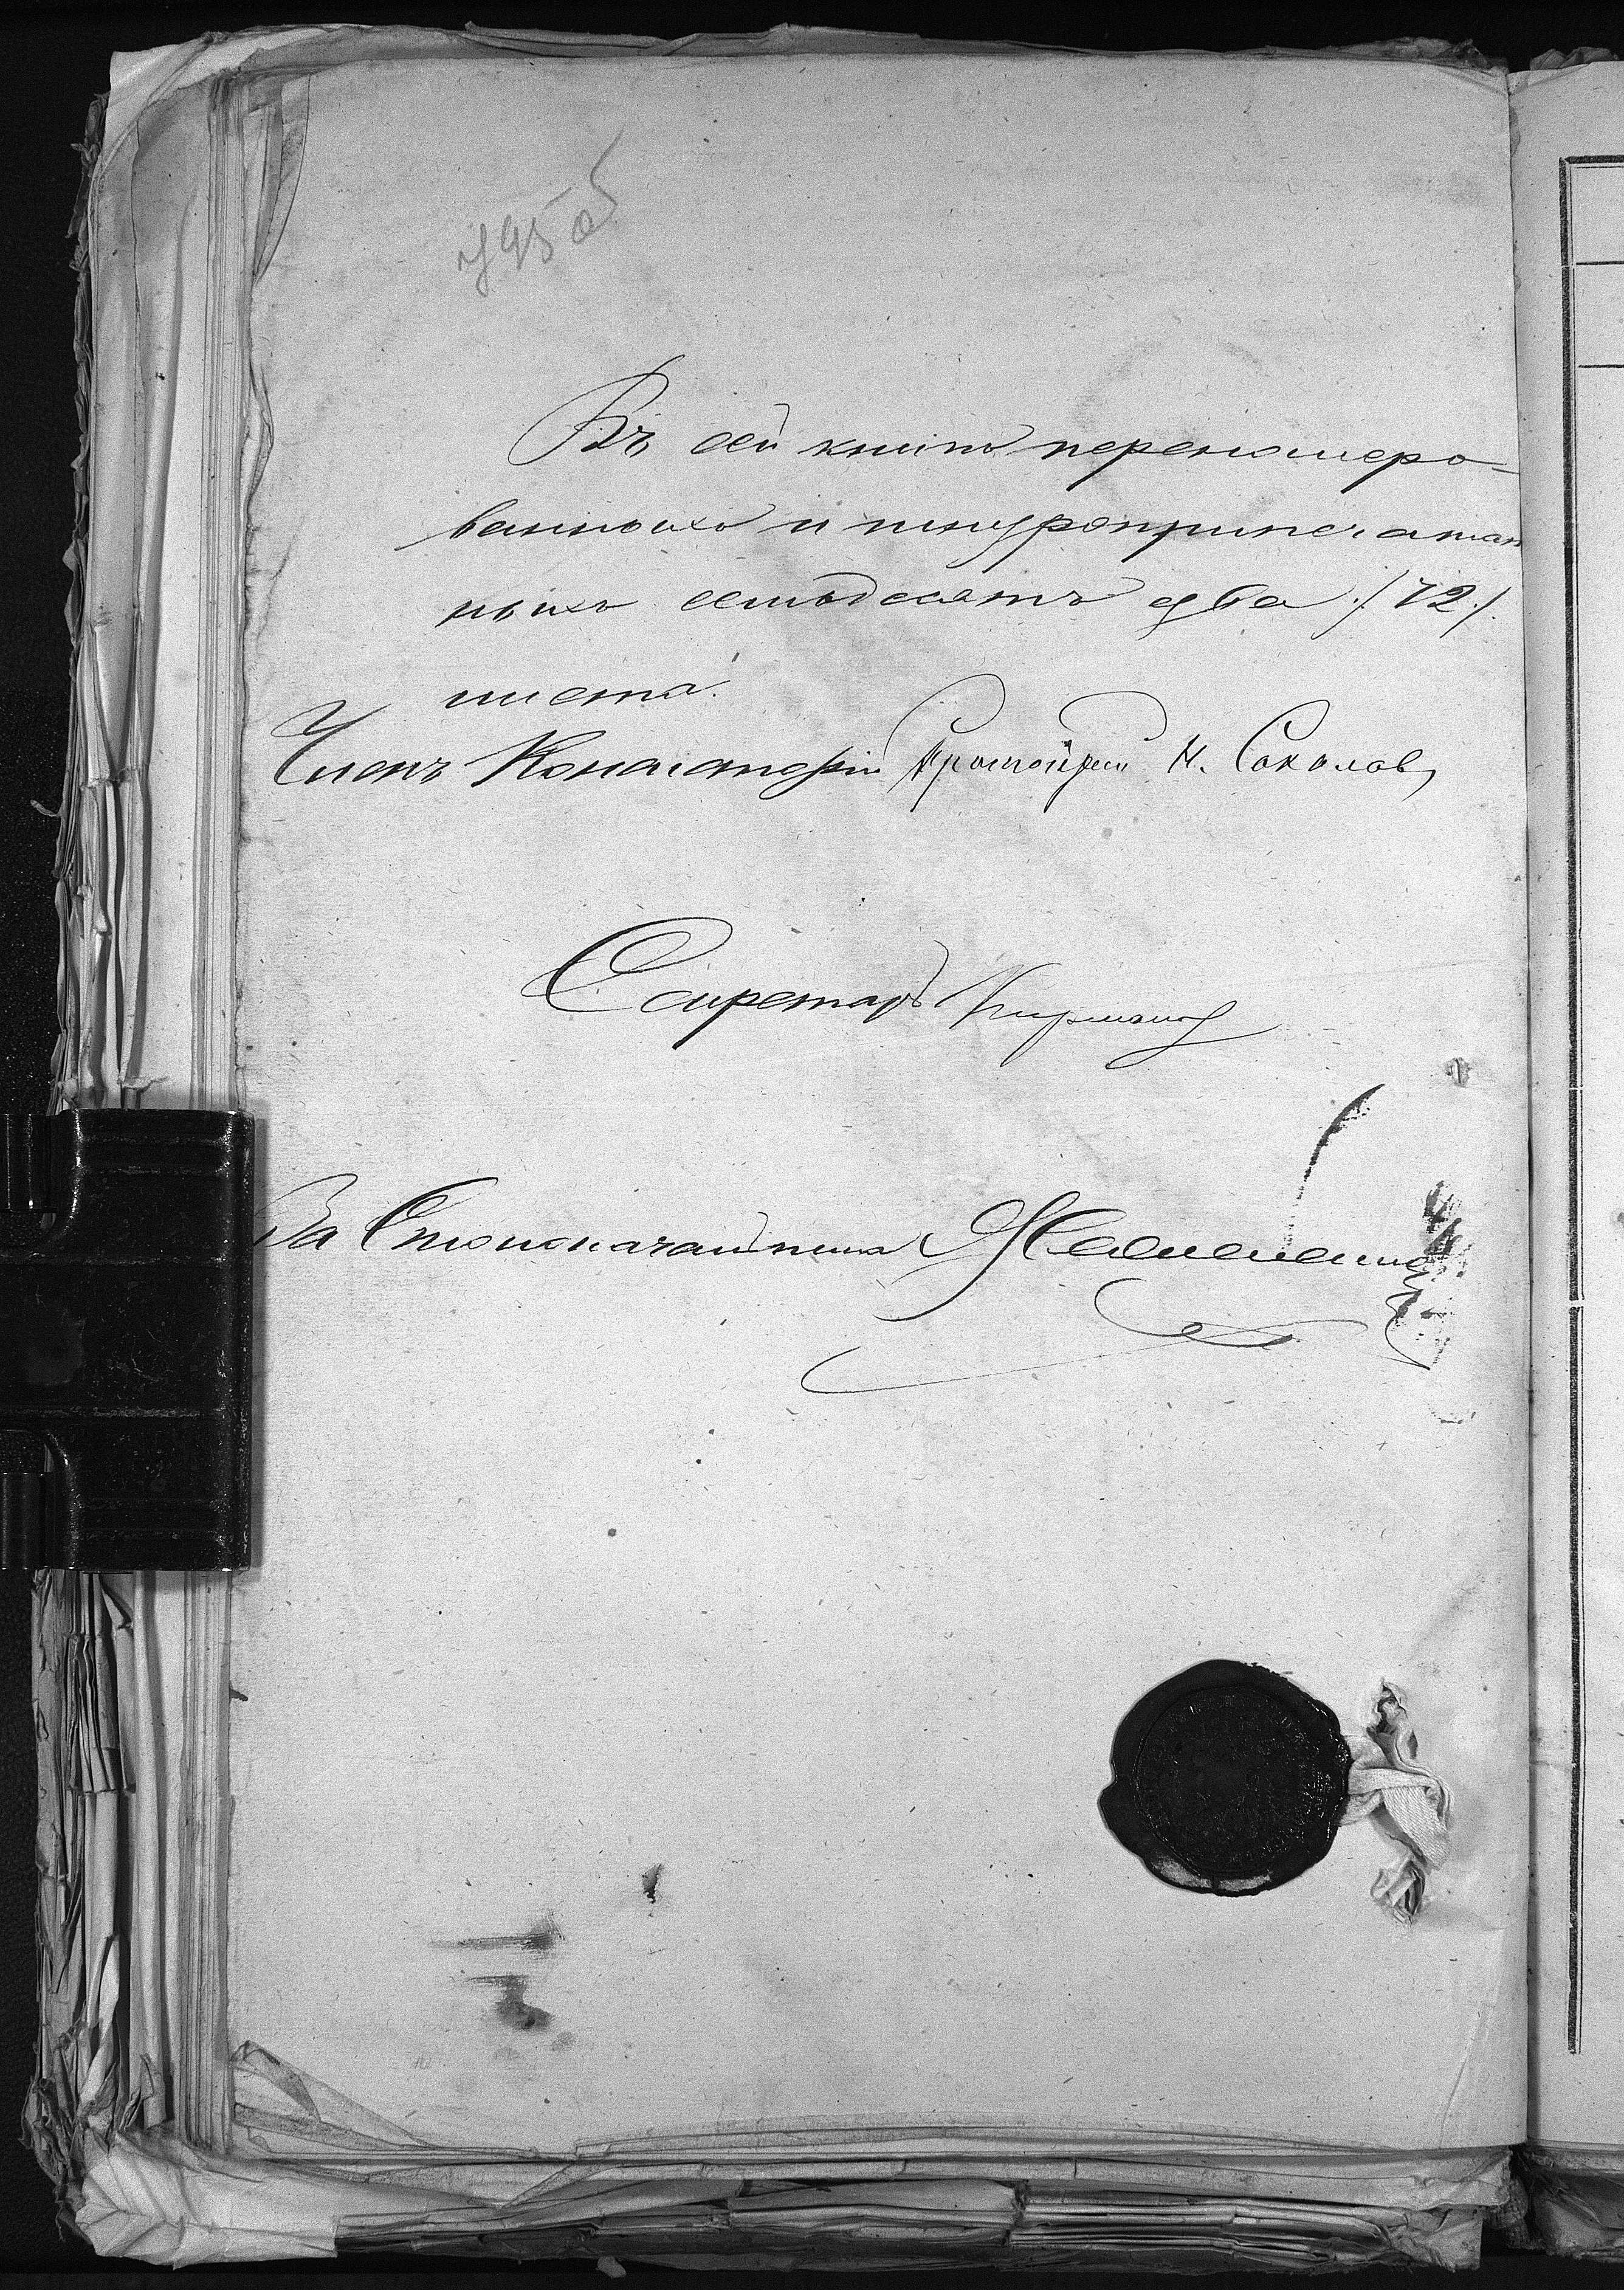 795 об
Въ сей книгѣ перенумеро-
ванныхъ и шнуроприпечатан
ныхъ семьдесятъ два /72/.
листа.
Членъ Консисторіи Протоіерей Н. Соколовъ
Секретарь
За Столоначальника